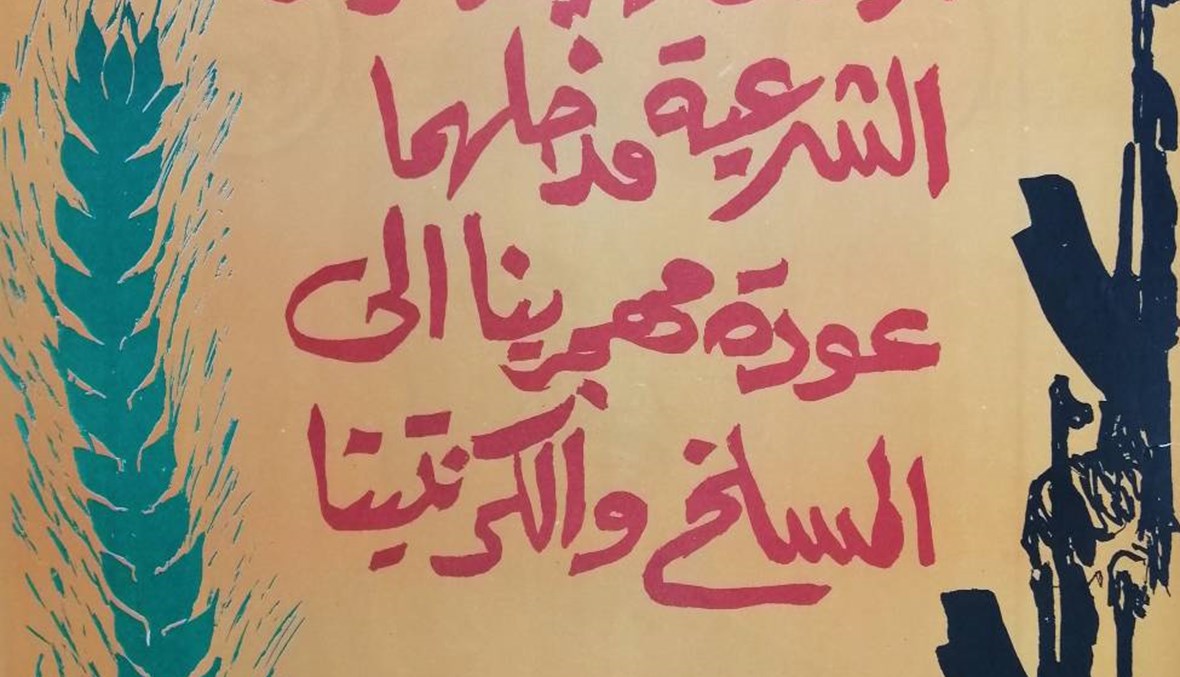 الشرعية مدخلهما
عودة مهجرينا الى
المسلخ والكرنتينا